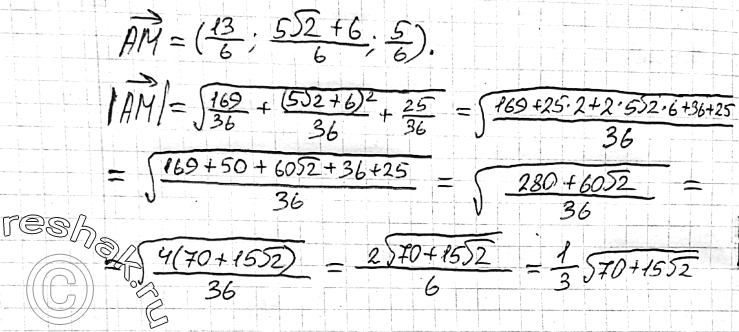 AM⃗ = (13/6; (5√2+6)/6; 5/6).
|AM⃗| = √(169/36 + (5√2+6)²/36 + 25/36) = √((169+25·2+2·5√2·6+36+25)/36)
= √((169+50+60√2+36+25)/36) = √((280+60√2)/36) =
= √(4(70+15√2)/36) = 2√(70+15√2)/6 = 1/3 √(70+15√2)
reshak.ru
©